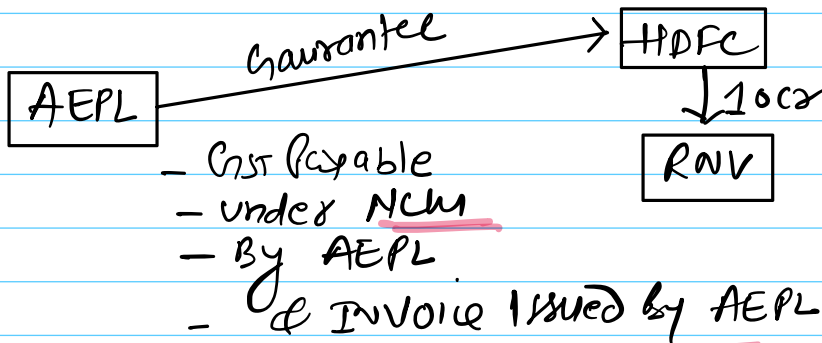 Gaurantee
HDFC
AEPL
10cr
RNV
- GST Payable
- under NCM
- By AEPL
- & INVOICE Issued by AEPL